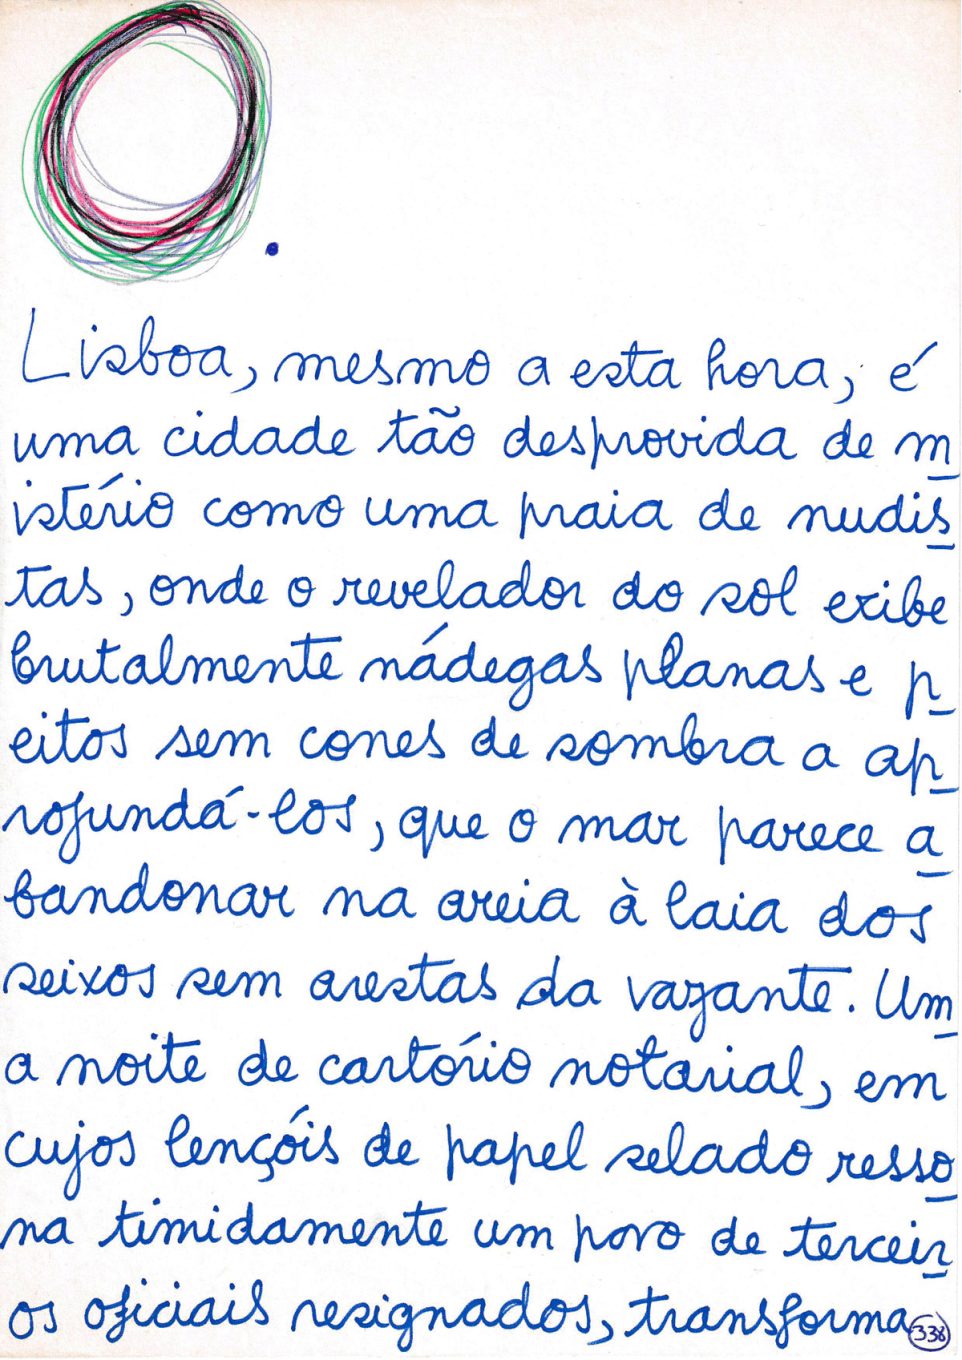 O.
Lisboa, mesmo a esta hora, é
uma cidade tão desprovida de m
istério como uma praia de nudis
tas, onde o revelador do sol exibe
brutalmente nádegas planas e p
eitos sem cones de sombra a ap
rofundá-los, que o mar parece a
bandonar na areia à laia dos
seixos sem arestas da vazante. Um
a noite de cartório notarial, em
cujos lençóis de papel selado resso
na timidamente um povo de terceir
os oficiais resignados, transforma
338